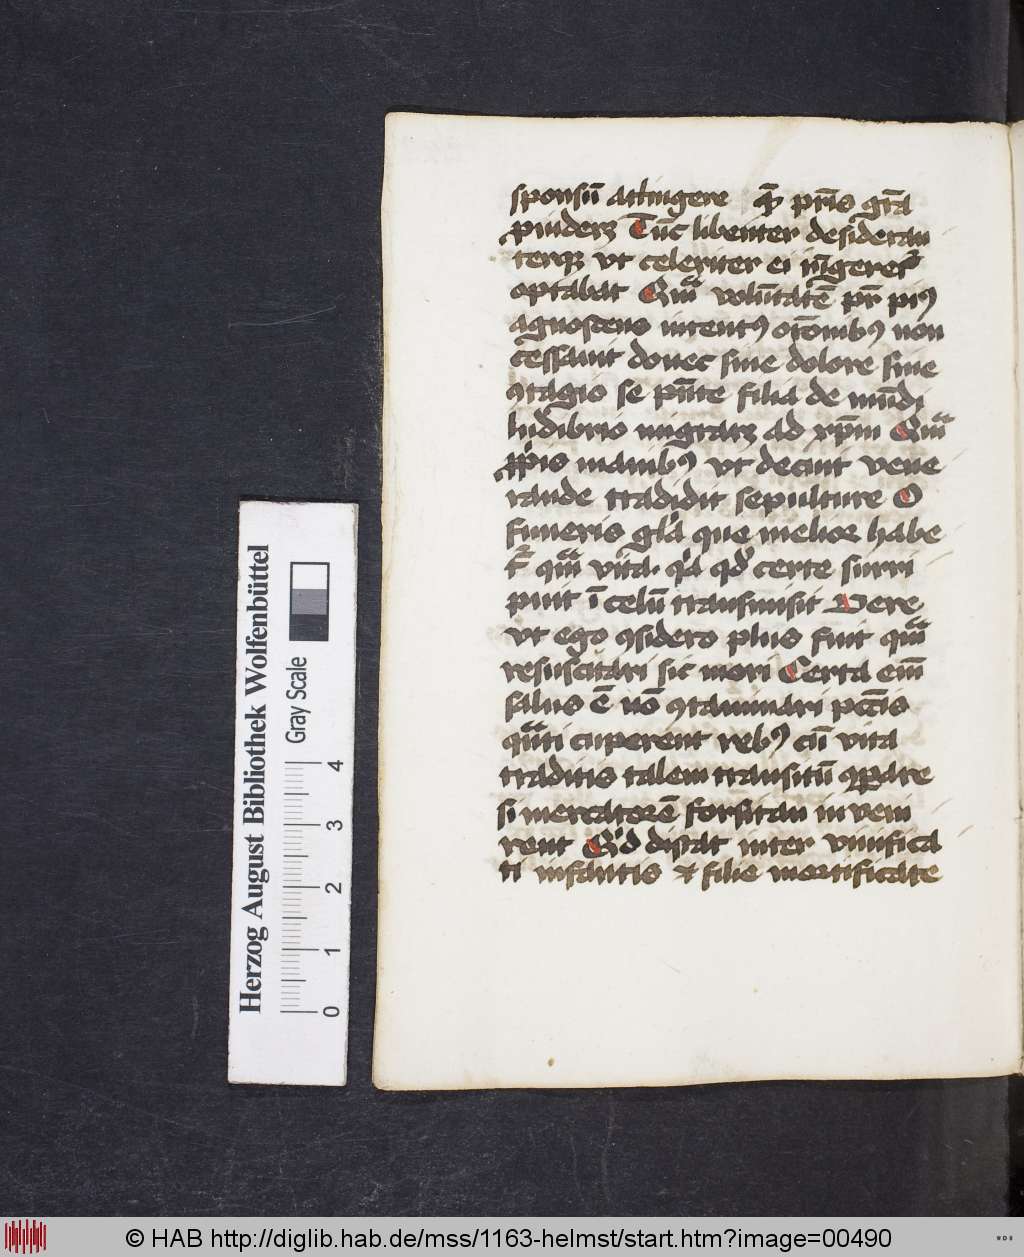 sponsū attingere qᷓ prīs gr̄a
puiderꝫ Tūc libenter desideran
terqꝫ vt celeriter ei iūgeret᷑
optabat Quā volūtatē pr̄ piꝰ
agnoscens intentꝰ or̄onibꝰ non
cessauit donec sine dolore sine
ꝯtagio se pn̄te filia de mūdi
ludibrio migrarꝫ ad xp̄m Quā
ꝓprijs manibꝰ vt decuit vene
rande tradidit sepulture O
funeris gl̄a que melior habe
t᷑ quā vita. qͥa qd̓ certe surri
puit ī celū transmisit Vere
vt ego ꝯsidero plus fuit quā
resuscitari sic mori Certa em̄
salus ē nō ꝯtaminari pctīs
quāti cuperent rebꝰ cū vita
traditis talem transitū ꝯparare
si mercatorē forsitan inveni
rent Qͥd distat inter viuifica
ti infantis et filie mortificate
Herzog August Bibliothek Wolfenbüttel
Gray Scale
0 1 2 3 4
© HAB http://diglib.hab.de/mss/1163-helmst/start.htm?image=00490